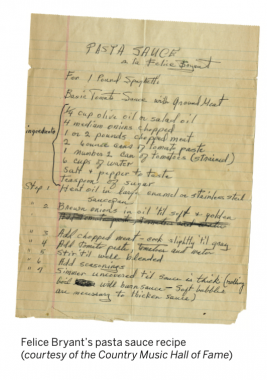 PASTA SAUCE
a la Felice Bryant
For 1 Pound Spaghetti
Basic Tomato Sauce with Ground Meat
ingredients
1/4 cup olive oil or salad oil
4 medium onions chopped
1 or 2 pounds chopped meat
2 6 ounce cans of tomato paste
1 number 2 can of tomatoes (strained)
6 cups of water
Salt & pepper to taste
teaspoon of sugar
Step 1 Heat oil in large enamel or stainless steel
saucepan
" 2 Brown onions in oil 'til soft & golden
" 3 Add chopped meat - cook slightly 'til gray
" 4 Add tomato paste tomatoes and water
" 5 Stir 'til well blended
" 6 Add seasonings
" 7 Simmer uncovered til sauce is thick (rolling
boil will burn sauce - Soft bubbles
are necessary to thicken sauce)
Felice Bryant's pasta sauce recipe
(courtesy of the Country Music Hall of Fame)